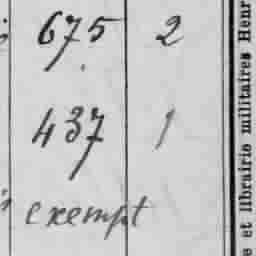 675 2
437 1
exempt
e et librairie militaires Henr